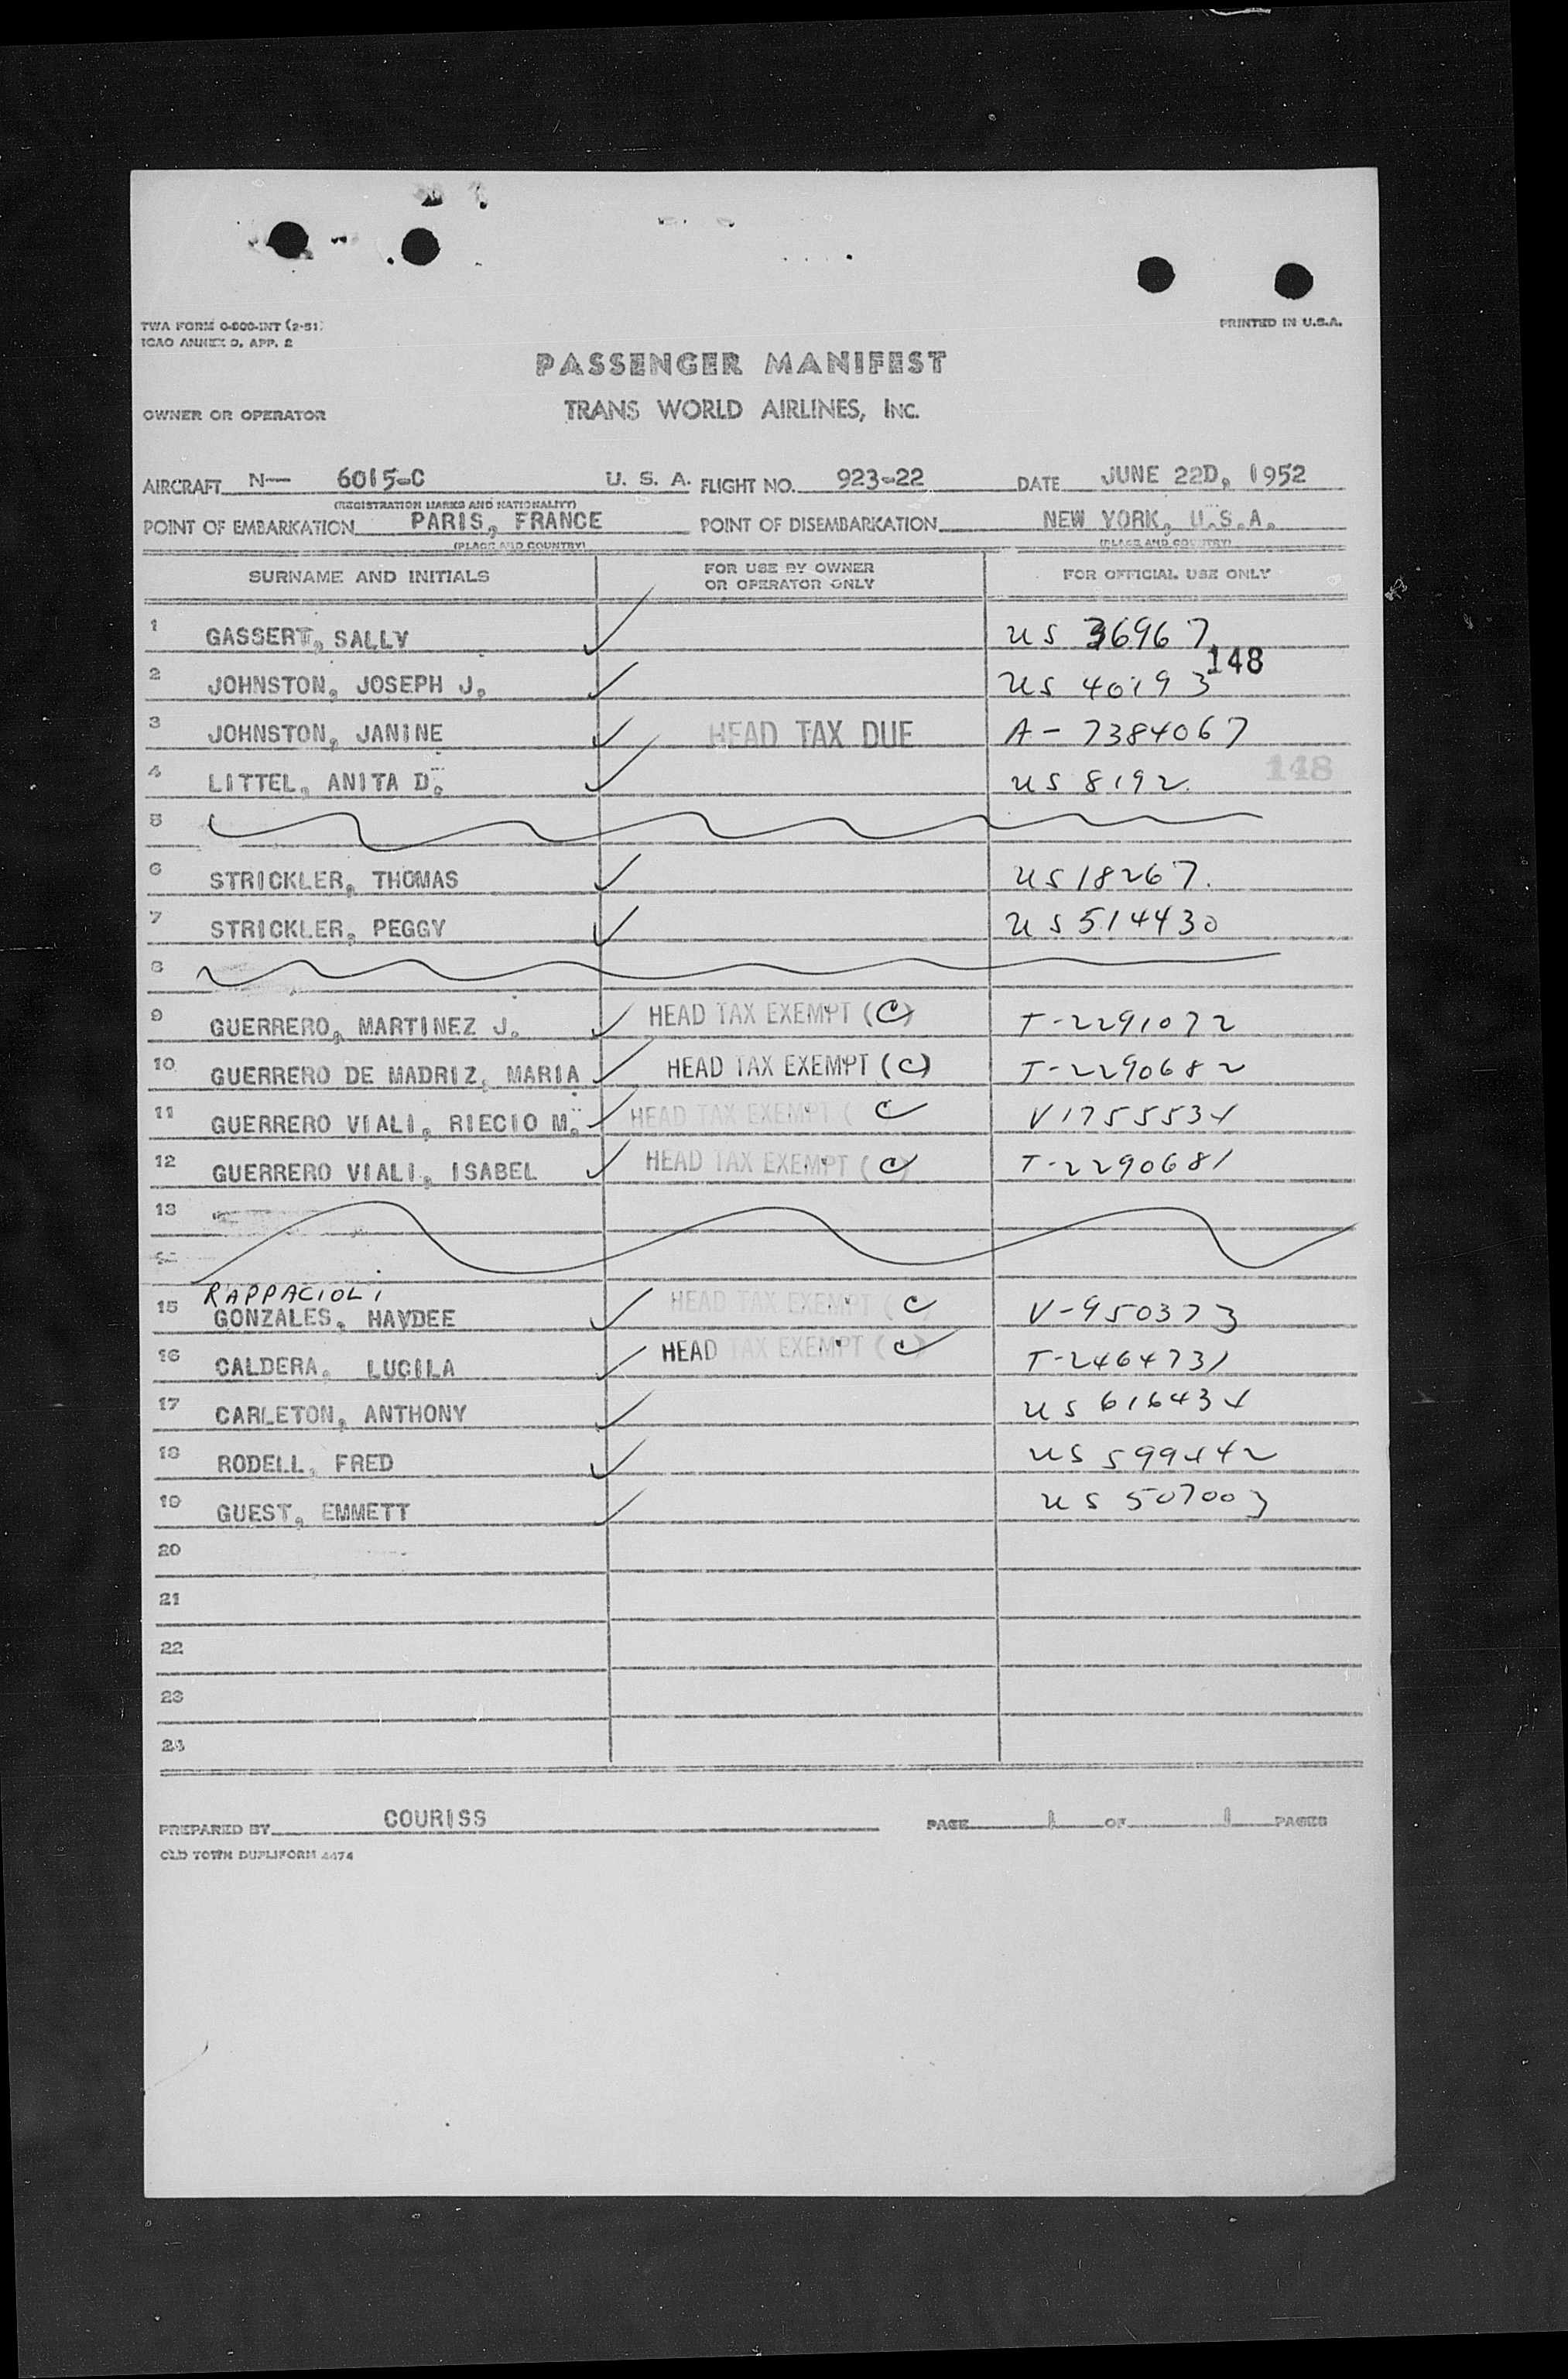 TWA FORM O-800-INT (2-51)
ICAO ANNEX 9, APP. 2
PRINTED IN U.S.A.
PASSENGER MANIFEST
OWNER OR OPERATOR TRANS WORLD AIRLINES, INC.
AIRCRAFT N— 6015-C U. S. A. FLIGHT NO. 923-22 DATE JUNE 22D, 1952
(REGISTRATION MARKS AND NATIONALITY)
POINT OF EMBARKATION PARIS, FRANCE POINT OF DISEMBARKATION NEW YORK, U.S.A.
(PLACE AND COUNTRY) (PLACE AND COUNTRY)
SURNAME AND INITIALS FOR USE BY OWNER OR OPERATOR ONLY FOR OFFICIAL USE ONLY
1 GASSERT, SALLY US 36967
148
2 JOHNSTON, JOSEPH J. US 40193
3 JOHNSTON, JANINE HEAD TAX DUE A-7384067
4 LITTEL, ANITA D. US 8192.
148
5
6 STRICKLER, THOMAS US 18267.
7 STRICKLER, PEGGY US 514430
8
9 GUERRERO, MARTINEZ J. HEAD TAX EXEMPT (C) T-2291072
10 GUERRERO DE MADRIZ, MARIA HEAD TAX EXEMPT (C) T-2290682
11 GUERRERO VIALI, RIECIO M. HEAD TAX EXEMPT (C V1755534
12 GUERRERO VIALI, ISABEL HEAD TAX EXEMPT (C) T-2290681
13
RAPPACIOLI
15 GONZALES, HAYDEE HEAD TAX EXEMPT (C) V-950373
16 CALDERA, LUCILA HEAD TAX EXEMPT (C) T-2464731
17 CARLETON, ANTHONY US 616434
18 RODELL, FRED US 599442
19 GUEST, EMMETT US 507003
20
21
22
23
24
PREPARED BY COURISS PAGE 1 OF 1 PAGES
OLD TOWN DUPLIFORM 4474